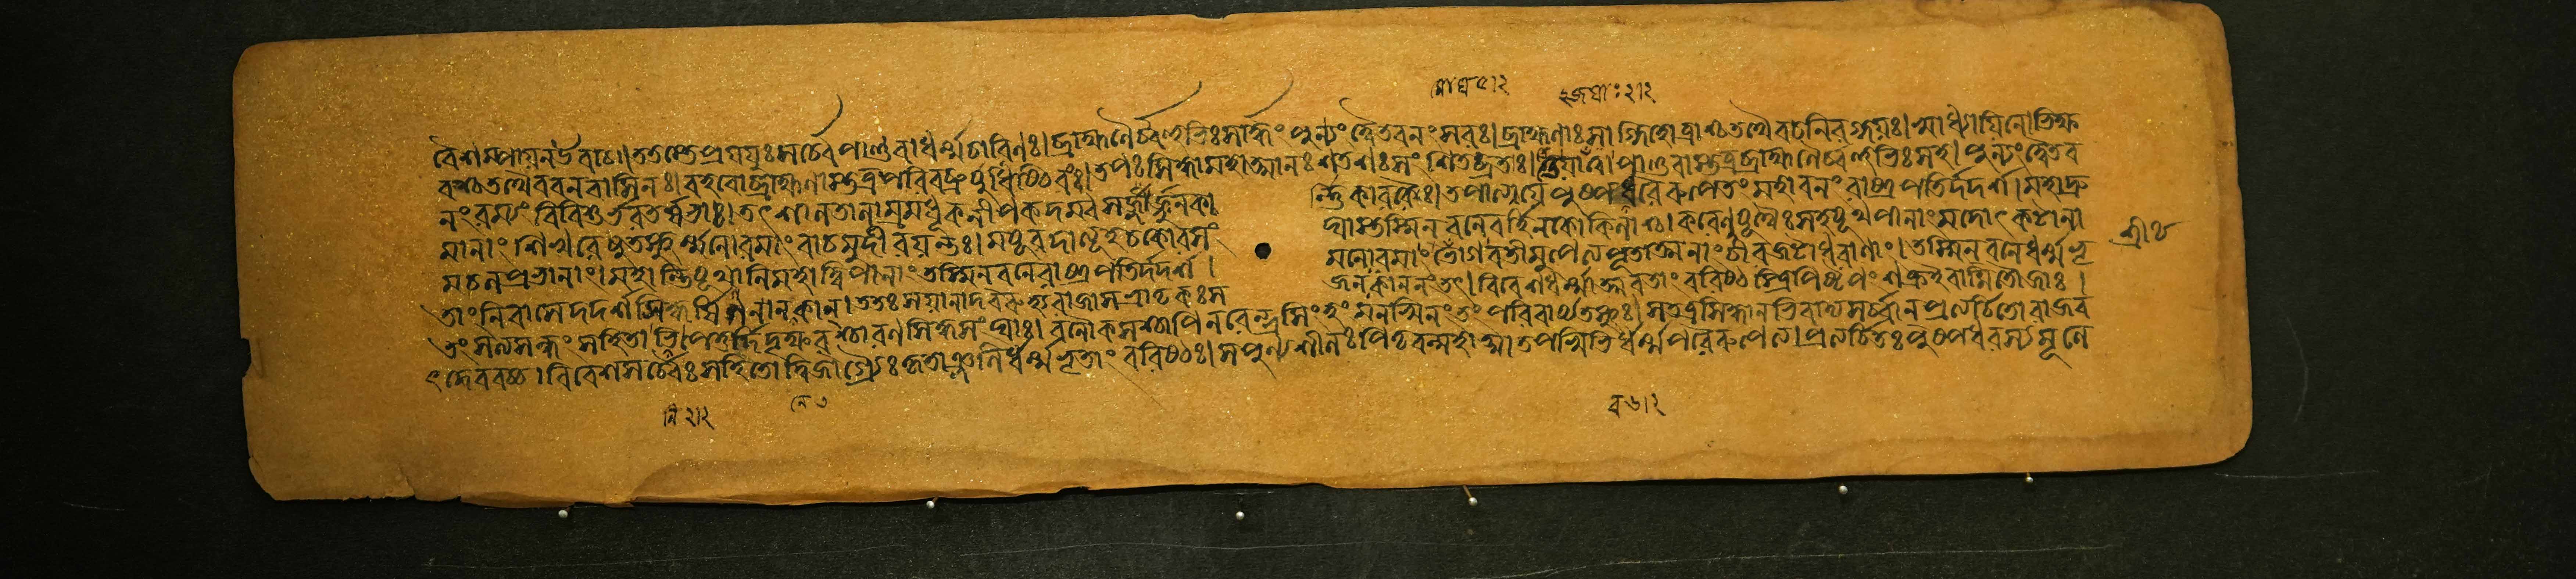 বৈশম্পায়ন উবাচ। ততস্তে প্রযযুঃ সর্ব্বে পাণ্ডবা ধর্ম্মচারিণঃ। ব্রাহ্মণৈর্ব্বহুভিঃ সার্দ্ধং পুণ্যং দ্বৈতবনং সরঃ। ব্রাহ্মণাঃ সাগ্নিহোত্রাশ্চ তথৈব চ নিরগ্নয়ঃ। স্বাধ্যায়িনো ভিক্ষ
বশ্চ তথৈব বনবাসিনঃ। বহবো ব্রাহ্মণাস্তত্র পরিবব্রুর্যুধিষ্ঠিরং। তপঃসিদ্ধা মহাত্মানঃ শতশঃ সংশিতব্রতাঃ। পাণ্ডবাস্তত্র ব্রাহ্মণৈর্ব্বহুভিঃ সহ। পুণ্যং দ্বৈতব
নং রম্যং বিবিশুর্ভরতর্ষভাঃ। তৎ শালতালাম্রমধূকনীপকদম্বসর্জ্জার্জ্জুনক র্ণিকারকৈঃ। তপাত্যয়ে পুষ্পধরৈরুপেতং মহাবনং রাষ্ট্রপতির্দদর্শ। মহাদ্রু
মানাং শিখরেষু তস্থুর্ম্মনোরমাং বাচমুদীরয়ন্তঃ। ময়ূরদাত্যূহচকোরসং ঘাস্তস্মিন্ বনে বর্হিনকোকিলাশ্চ। করেণুযূথৈঃ সহ যূথপানাং মদোৎকটানা
মচলপ্রভানাং। মহান্তি যূথানি মহাদ্বিপানাং তস্মিন্ বনে রাষ্ট্রপতির্দদর্শ। মনোরমাং ভোগবতীমুপেত্য ধৃতাত্মনাং চীরজটাধরাণাং। তস্মিন্ বনে ধর্ম্মভৃ
তাং নিবাসে দদর্শ সিদ্ধর্ষিগণাননেকান্। ততঃ স যানাদবরুহ্য রাজা সভ্রাতৃকঃ স জনঃ কাননং তৎ। বিবেশ ধর্ম্মাত্মবতাং বরিষ্ঠস্ত্রিপিষ্টপং শক্র ইবামিতৌজাঃ।
তং সত্যসন্ধং সহিতাভিপেতুর্দ্দিদৃক্ষবশ্চারণসিদ্ধসংঘাঃ। বনৌকসশ্চাপি নরেন্দ্রসিংহং মনস্বিনং তং পরিবার্য্য তস্থুঃ। স তত্র সিদ্ধানভিবাদ্য সর্ব্বান্ প্রত্যর্চ্চিতো রাজব
ৎ দেববচ্চ। বিবেশ সর্ব্বৈঃ সহিতো দ্বিজাগ্র্যৈঃ কৃতাঞ্জলির্ধর্ম্মভৃতাং বরিষ্ঠঃ। স পুণ্যশীলঃ পিতৃবন্মহাত্মা তপস্বিভির্ধর্ম্মপরৈরুপেত্য। প্রত্যর্চ্চিতঃ পুষ্পধরস্য মূলে